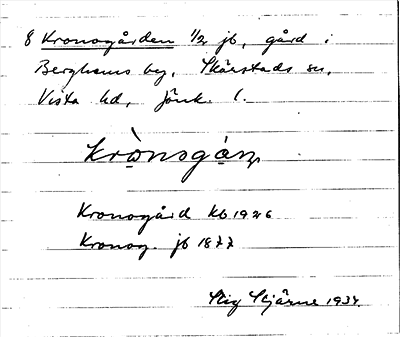 8 Kronogården 1/2 jb, gård i
Berghems by, Skärstads sn,
Vista hd, Jönk. l.
Kronogård kb 1926
Kronog. jb 1877
Stig Stjärne 1934.